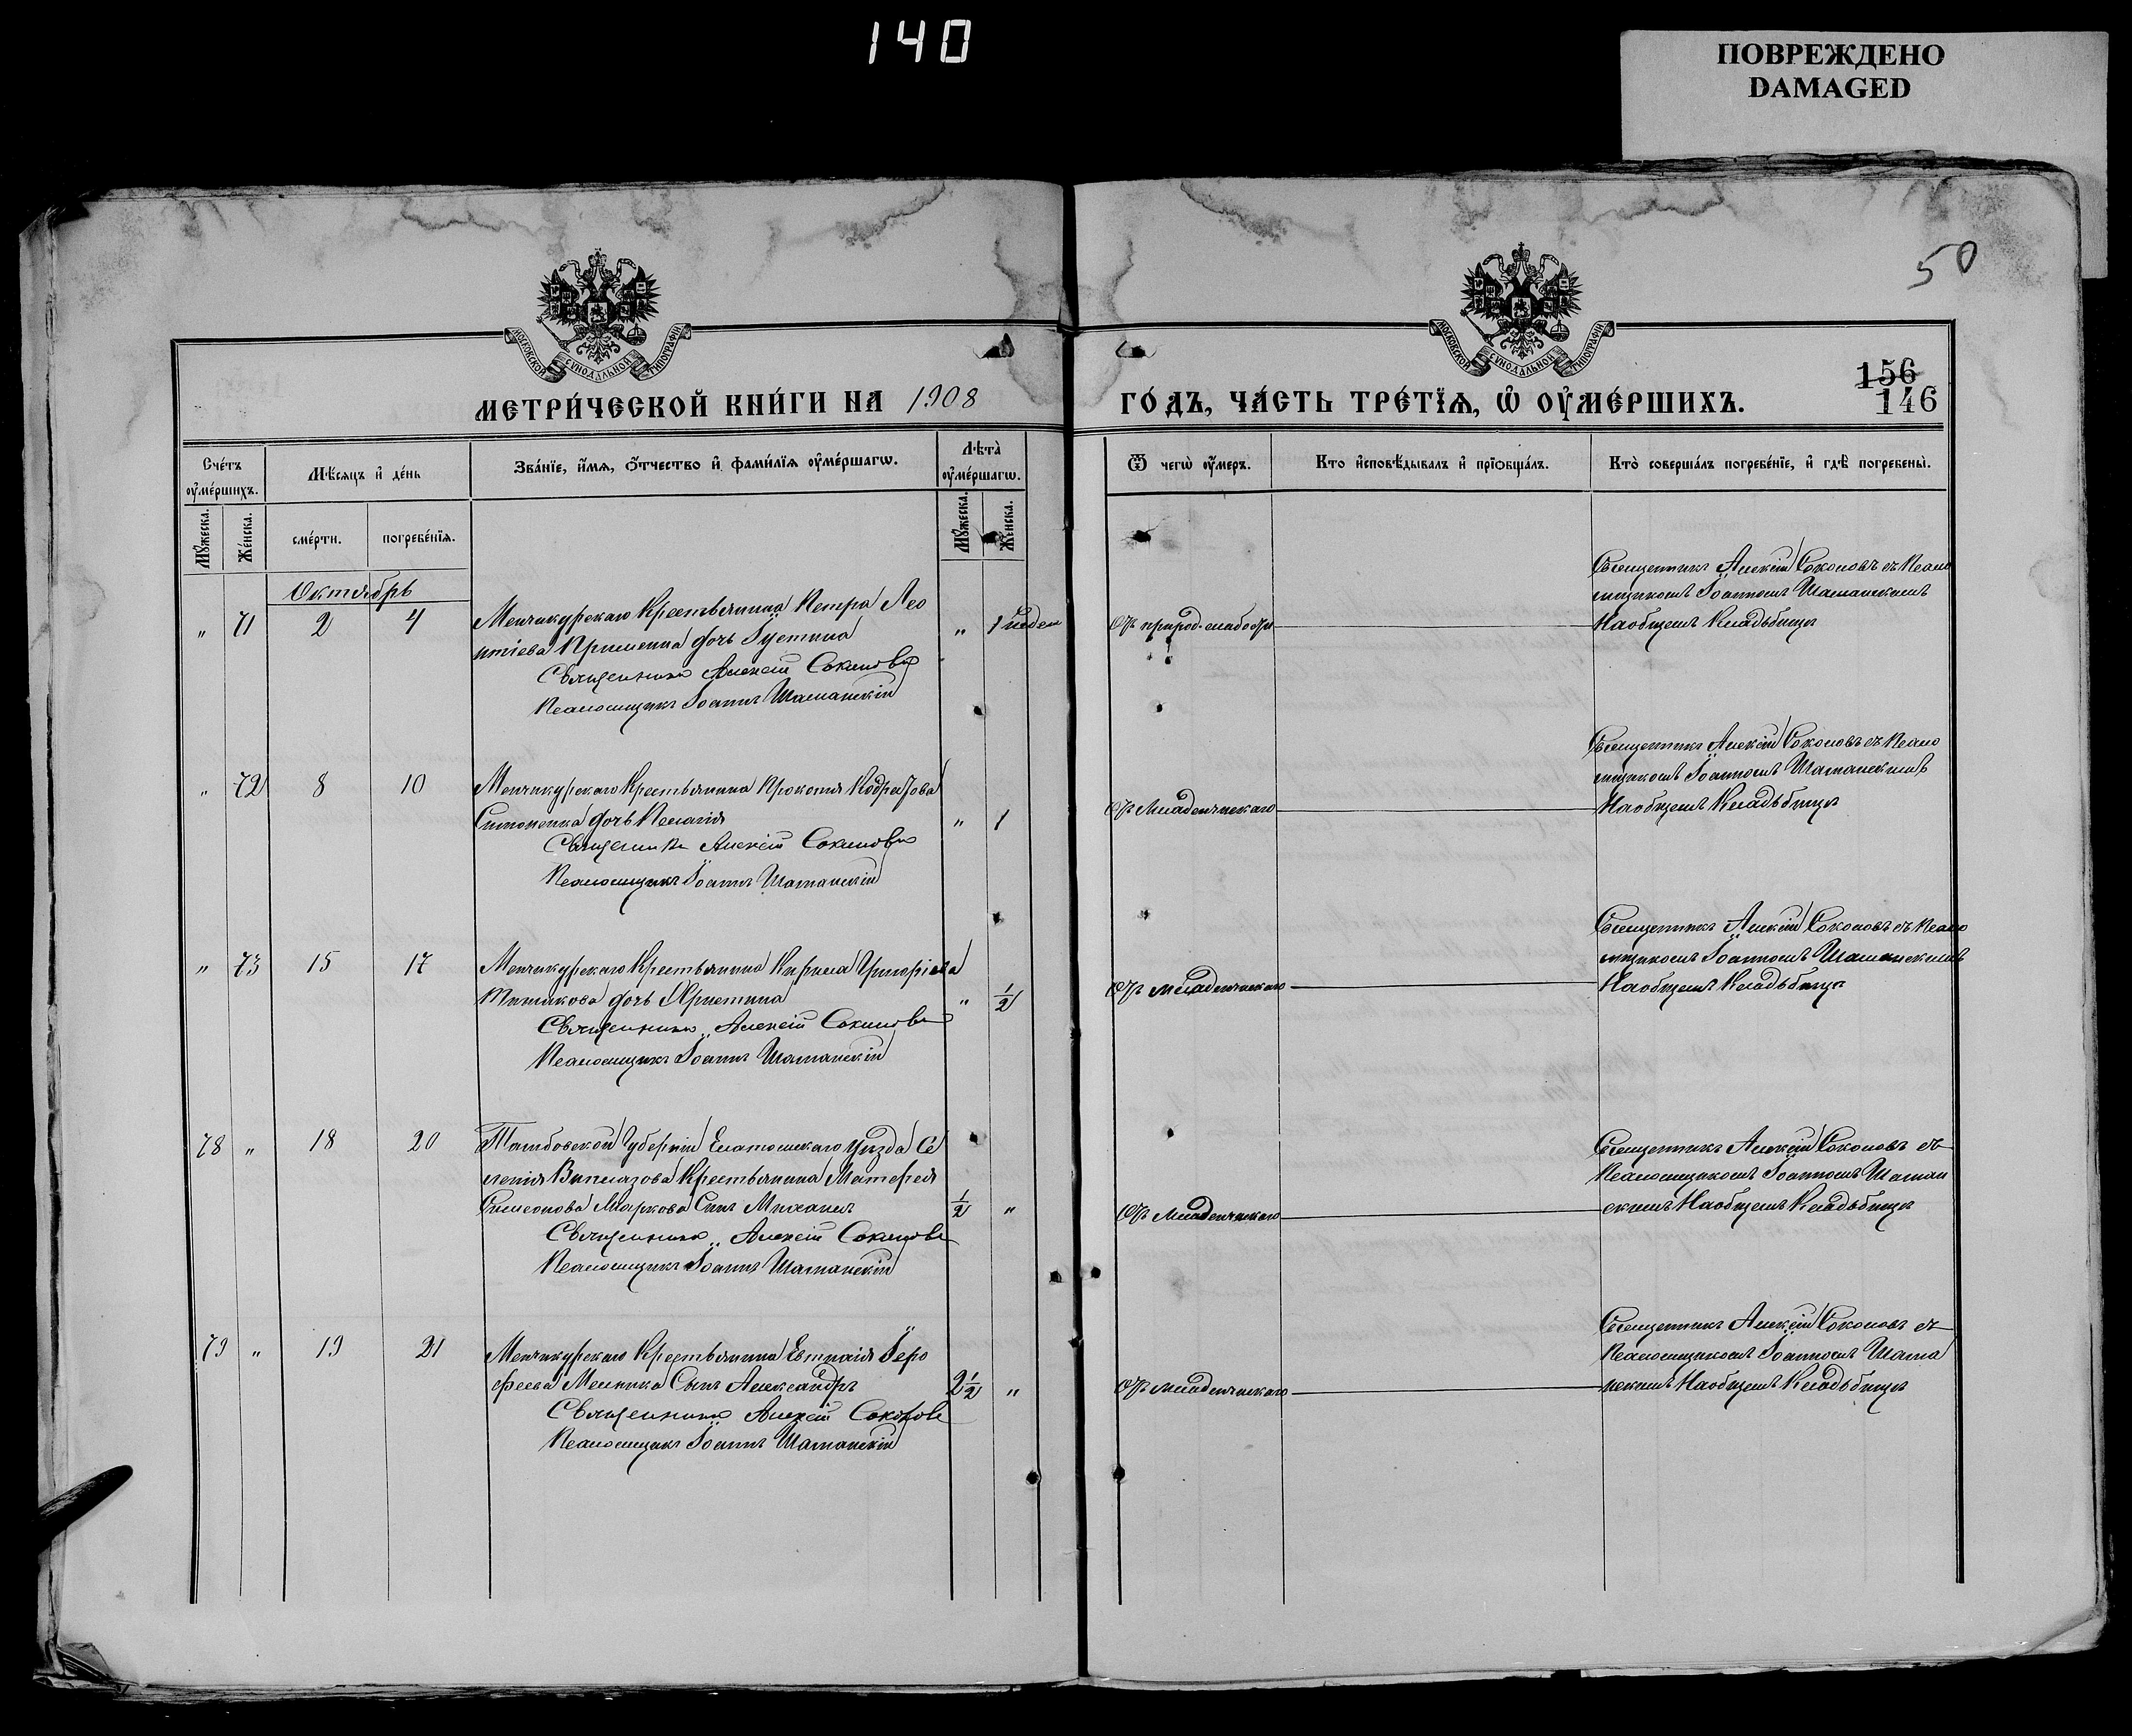 140
ПОВРЕЖДЕНО
DAMAGED
50
МОСКОВСКОЙ СѴНОДАЛЬНОЙ ТИПОГРАФІИ
МОСКОВСКОЙ СѴНОДАЛЬНОЙ ТИПОГРАФІИ
156
146
МЕТРИ́ЧЕСКОЙ КНИ́ГИ НА 1908
ГО́ДЪ, ЧА́СТЬ ТРЕ́ТЇѦ, Ѡ ОУМЕ́РШИХЪ.
Сче́тъ оуме́ршихъ.
Мѣ́сѧцъ и де́нь
Зва́нїе, и́мѧ, о́тчество и фами́лїѧ оуме́ршагѡ.
Лѣта̀ оуме́ршагѡ.
Ѿ чегѡ̀ оу́меръ.
Кто исповѣ́дывалъ и прїобща́лъ.
Кто̀ соверша́лъ погребе́нїе, и гдѣ̀ погребены̀.
Мꙋ́жеска.
Же́нска.
сме́рти.
погребе́нїѧ.
Мꙋ́жеска.
Же́нска.
Октябрь
" 71 2 4
Менчикурскаго Крестьянина Петра Лео
нтіева дочь Іустина
Священникъ Алексій Соколовъ
Псаломщикъ Іоаннъ Шаманскій
" 1 недел
Отъ природ. слабости
Священникъ Алексій Соколовъ съ Псало
мщикомъ Іоанномъ Шаманскимъ
На общемъ Кладбищѣ
" 72 8 10
Менчикурскаго Крестьянина Прокопія Кодратова
Симоненка дочь Пелагія
Священникъ Алексій Соколовъ
Псаломщикъ Іоаннъ Шаманскій
" 1
Отъ Младенческаго
Священникъ Алексій Соколовъ съ Псало
мщикомъ Іоанномъ Шаманскимъ
На общемъ Кладбищѣ
" 73 15 17
Менчикурскаго Крестьянина Кирила Григоріева
дочь Христина
Священникъ Алексій Соколовъ
Псаломщикъ Іоаннъ Шаманскій
" 1/2
Отъ младенческаго
Священникъ Алексій Соколовъ съ Псало
мщикомъ Іоанномъ Шаманскимъ
На общемъ Кладбищѣ
78 " 18 20
Тамбовской Губерніи Елатомскаго уѣзда Се
ленія Крестьянина Матфея
Симеонова Маркова Сынъ Михаилъ
Священникъ Алексій Соколовъ
Псаломщикъ Іоаннъ Шаманскій
1/2 "
Отъ Младенческаго
Священникъ Алексій Соколовъ съ
Псаломщикомъ Іоанномъ Шаман
скимъ На общемъ Кладбищѣ
79 " 19 21
Менчикурскаго Крестьянина Іеро
феева Мелника Сынъ Александръ
Священникъ Алексій Соколовъ
Псаломщикъ Іоаннъ Шаманскій
2 1/2 "
Отъ младенческаго
Священникъ Алексій Соколовъ съ
Псаломщикомъ Іоанномъ Шама
нскимъ На общемъ Кладбищѣ